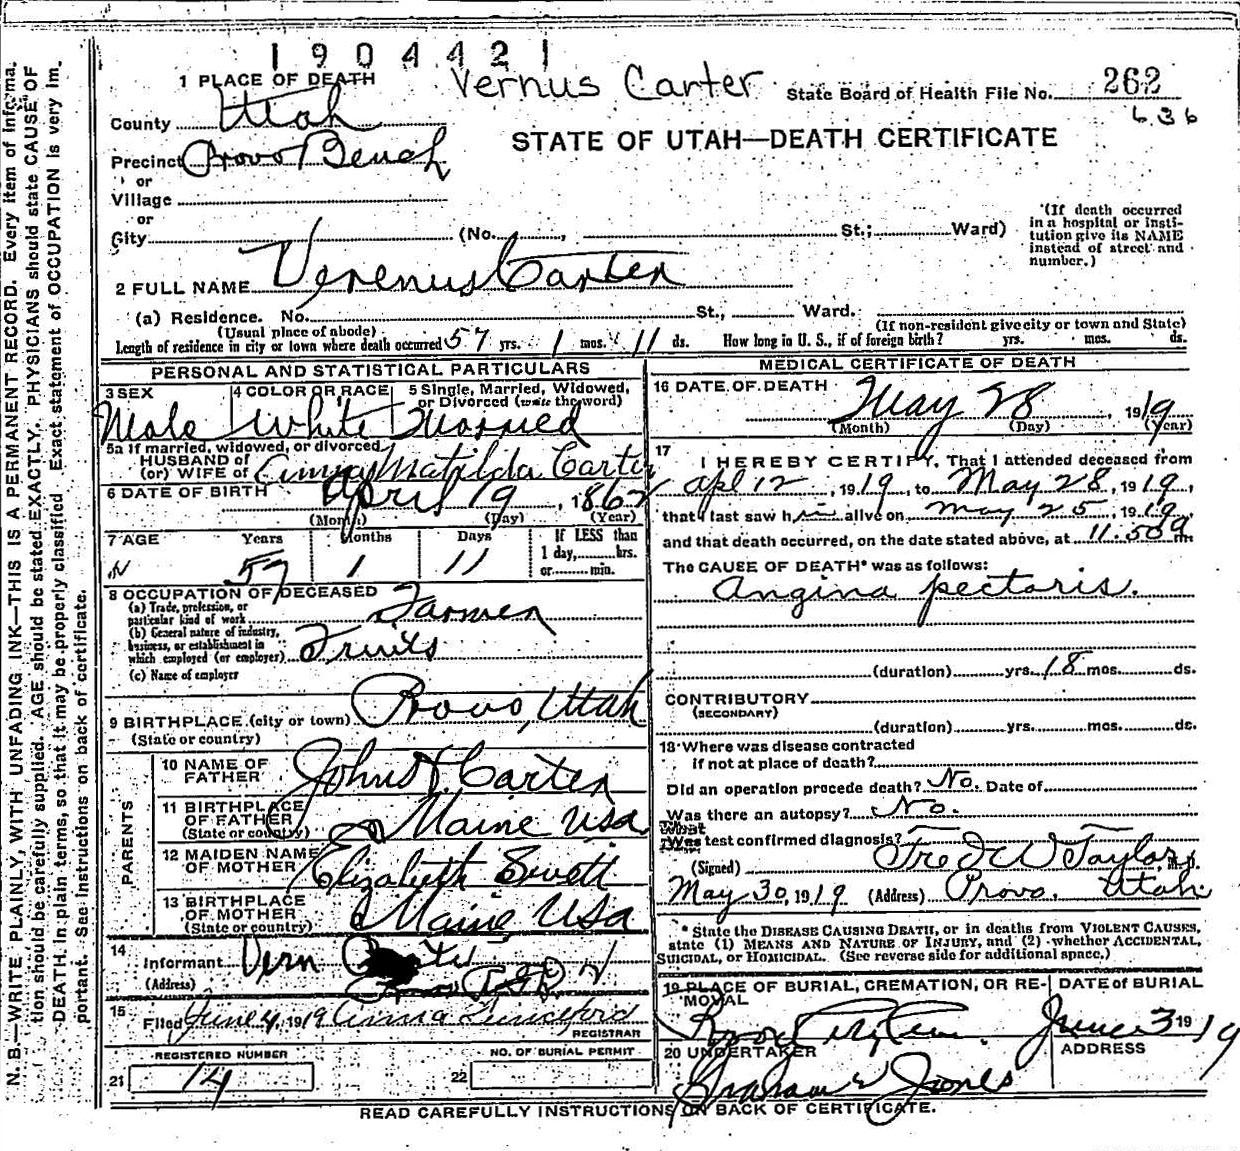 1904421
1 PLACE OF DEATH Vernus Carter State Board of Health File No. 262
636
County Utah
STATE OF UTAH—DEATH CERTIFICATE
Precinct Provo Bench
or
Village
or
City (No. , St.; Ward)
(If death occurred
in a hospital or insti-
tution give its NAME
instead of street and
number.)
2 FULL NAME Verenus Carter
(a) Residence. No. St., Ward.
(Usual place of abode) (If non-resident give city or town and State)
Length of residence in city or town where death occurred 57 yrs. 1 mos. 11 ds. How long in U. S., if of foreign birth? yrs. mos. ds.
PERSONAL AND STATISTICAL PARTICULARS
3 SEX 4 COLOR OR RACE 5 Single, Married, Widowed,
or Divorced (write the word)
Male White Married
5a If married, widowed, or divorced
HUSBAND of
(or) WIFE of Anna Matilda Carter
6 DATE OF BIRTH April 19, 1862
(Month) (Day) (Year)
7 AGE Years Months Days If LESS than
1 day, hrs.
or min.
57 1 11
8 OCCUPATION OF DECEASED
(a) Trade, profession, or
particular kind of work Farmer
(b) General nature of industry,
business, or establishment in
which employed (or employer) Fruits
(c) Name of employer
9 BIRTHPLACE (city or town) Provo, Utah
(State or country)
PARENTS
10 NAME OF
FATHER John H. Carter
11 BIRTHPLACE
OF FATHER
(State or country) Maine USA
12 MAIDEN NAME
OF MOTHER Elizabeth Swett
13 BIRTHPLACE
OF MOTHER
(State or country) Maine USA
14
Informant Vern
(Address)
15
Filed June 4, 1919 Anna
REGISTRAR
REGISTERED NUMBER NO. OF BURIAL PERMIT
21 14 22
MEDICAL CERTIFICATE OF DEATH
16 DATE OF DEATH May 28, 1919
(Month) (Day) (Year)
17
I HEREBY CERTIFY, That I attended deceased from
Apl 12, 1919, to May 28, 1919,
that I last saw him alive on May 25, 1919,
and that death occurred, on the date stated above, at 11.50 a m.
The CAUSE OF DEATH* was as follows:
Angina pectoris.
(duration) yrs. 18 mos. ds.
CONTRIBUTORY
(SECONDARY)
(duration) yrs. mos. ds.
18 Where was disease contracted
if not at place of death?
Did an operation precede death? No. Date of
Was there an autopsy? No.
What
test confirmed diagnosis?
(Signed) Fred W Taylor, M.D.
May 30, 1919 (Address) Provo, Utah
* State the DISEASE CAUSING DEATH, or in deaths from VIOLENT CAUSES,
state (1) MEANS AND NATURE OF INJURY, and (2) whether ACCIDENTAL,
SUICIDAL, or HOMICIDAL. (See reverse side for additional space.)
19 PLACE OF BURIAL, CREMATION, OR RE-
MOVAL
DATE of BURIAL
Provo City Cem. June 3 1919
20 UNDERTAKER ADDRESS
Graham & Jones
READ CAREFULLY INSTRUCTIONS ON BACK OF CERTIFICATE.
N. B.—WRITE PLAINLY, WITH UNFADING INK—THIS IS A PERMANENT RECORD. Every item of informa-
tion should be carefully supplied. AGE should be stated EXACTLY. PHYSICIANS should state CAUSE OF
DEATH in plain terms, so that it may be properly classified. Exact statement of OCCUPATION is very im-
portant. See instructions on back of certificate.